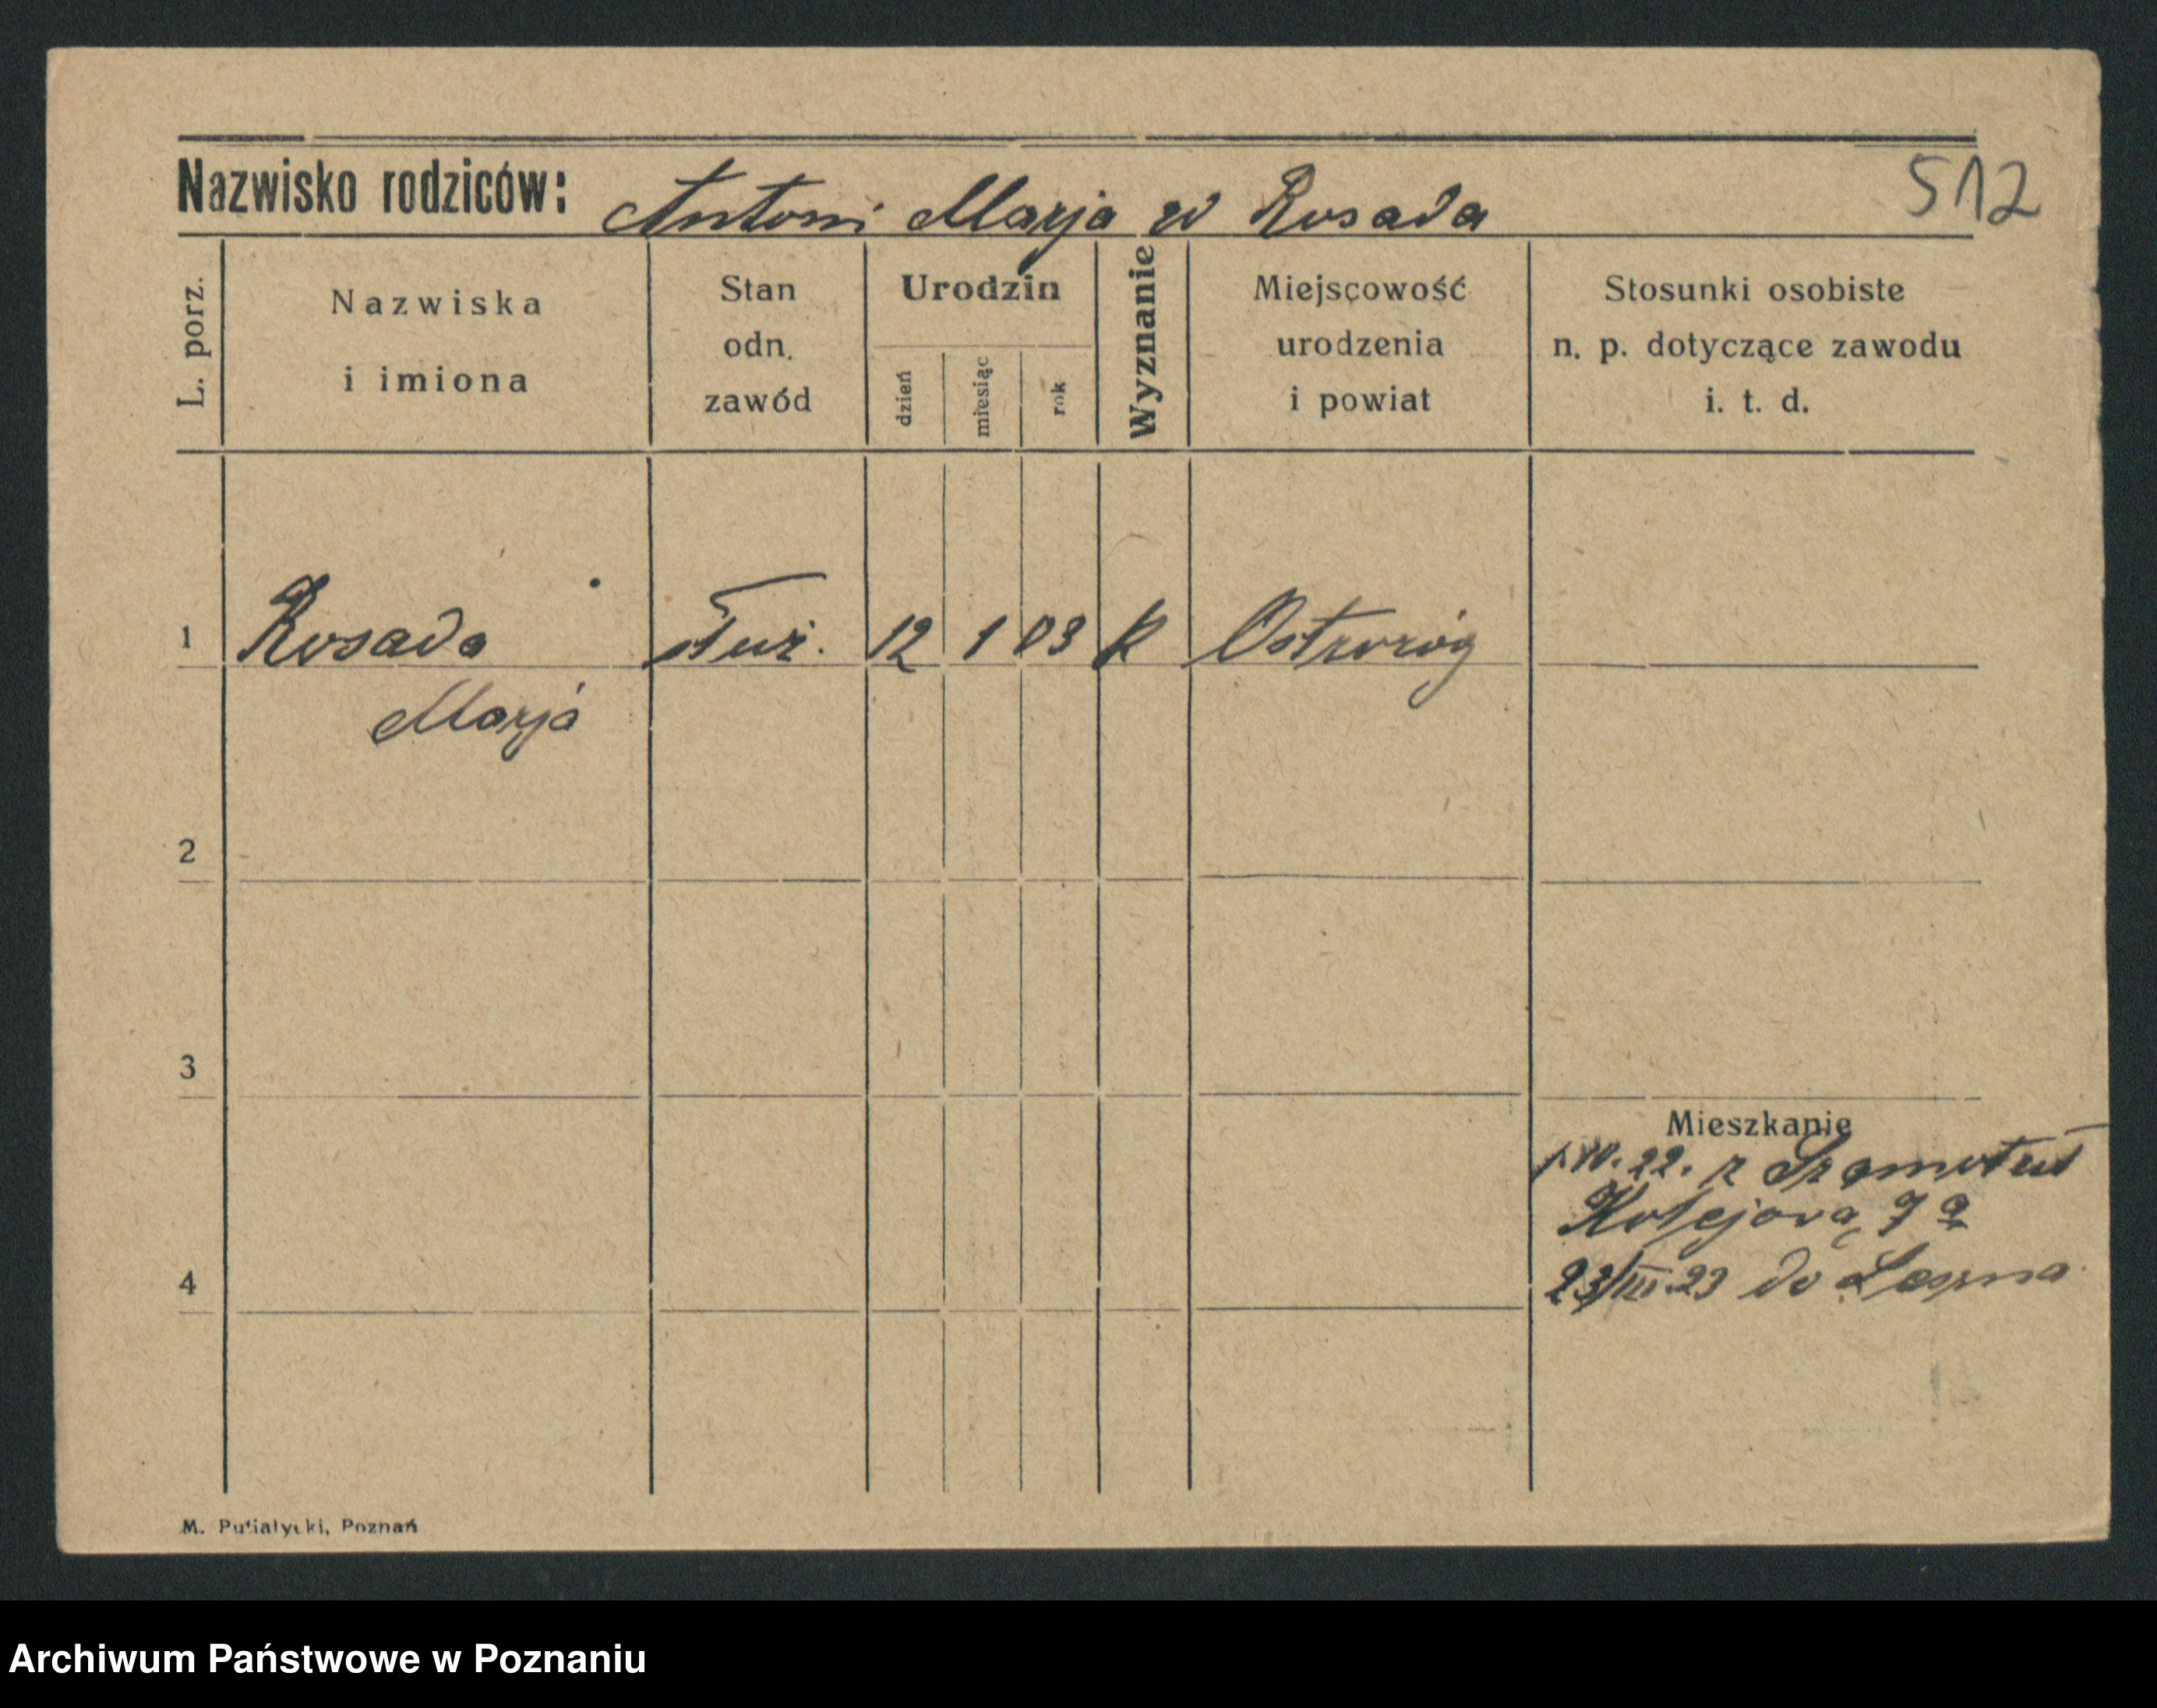 Nazwisko rodziców: Antoni Marja w Rosada
512
L. porz.
Nazwiska
i imiona
Stan
odn.
zawód
Urodzin
dzień
miesiąc
rok
Wyznanie
Miejscowość
urodzenia
i powiat
Stosunki osobiste
n. p. dotyczące zawodu
i. t. d.
1 Rosada służ. 12 1 03 K Ostroróg
Marja
2
3
Mieszkanie
22. z Szamotuł
Kolejowa 7a
4
23/III.23 do Leszna
M. Putiatycki, Poznań
Archiwum Państwowe w Poznaniu